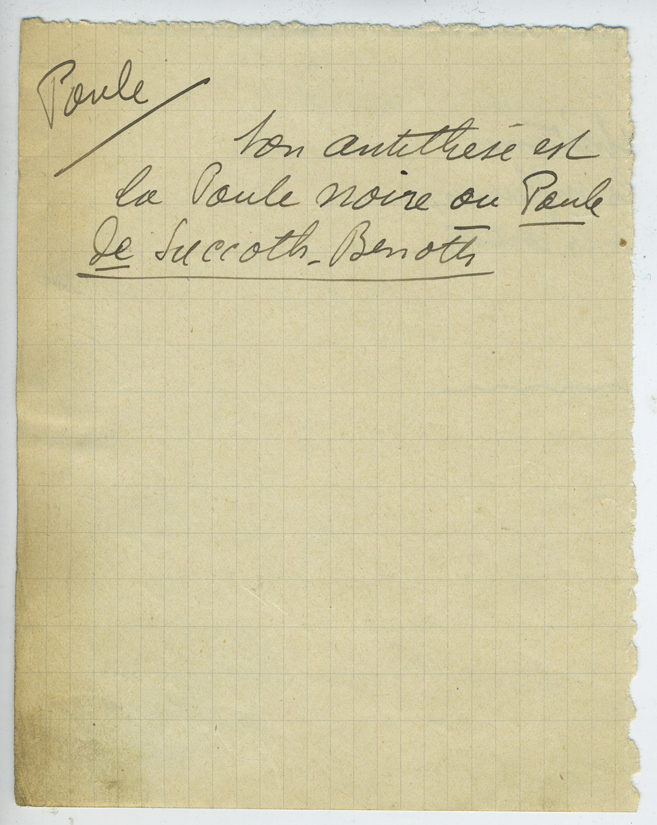 Poule
Son antithèse est
la Poule noire ou Poule
de Succoth-Benoth